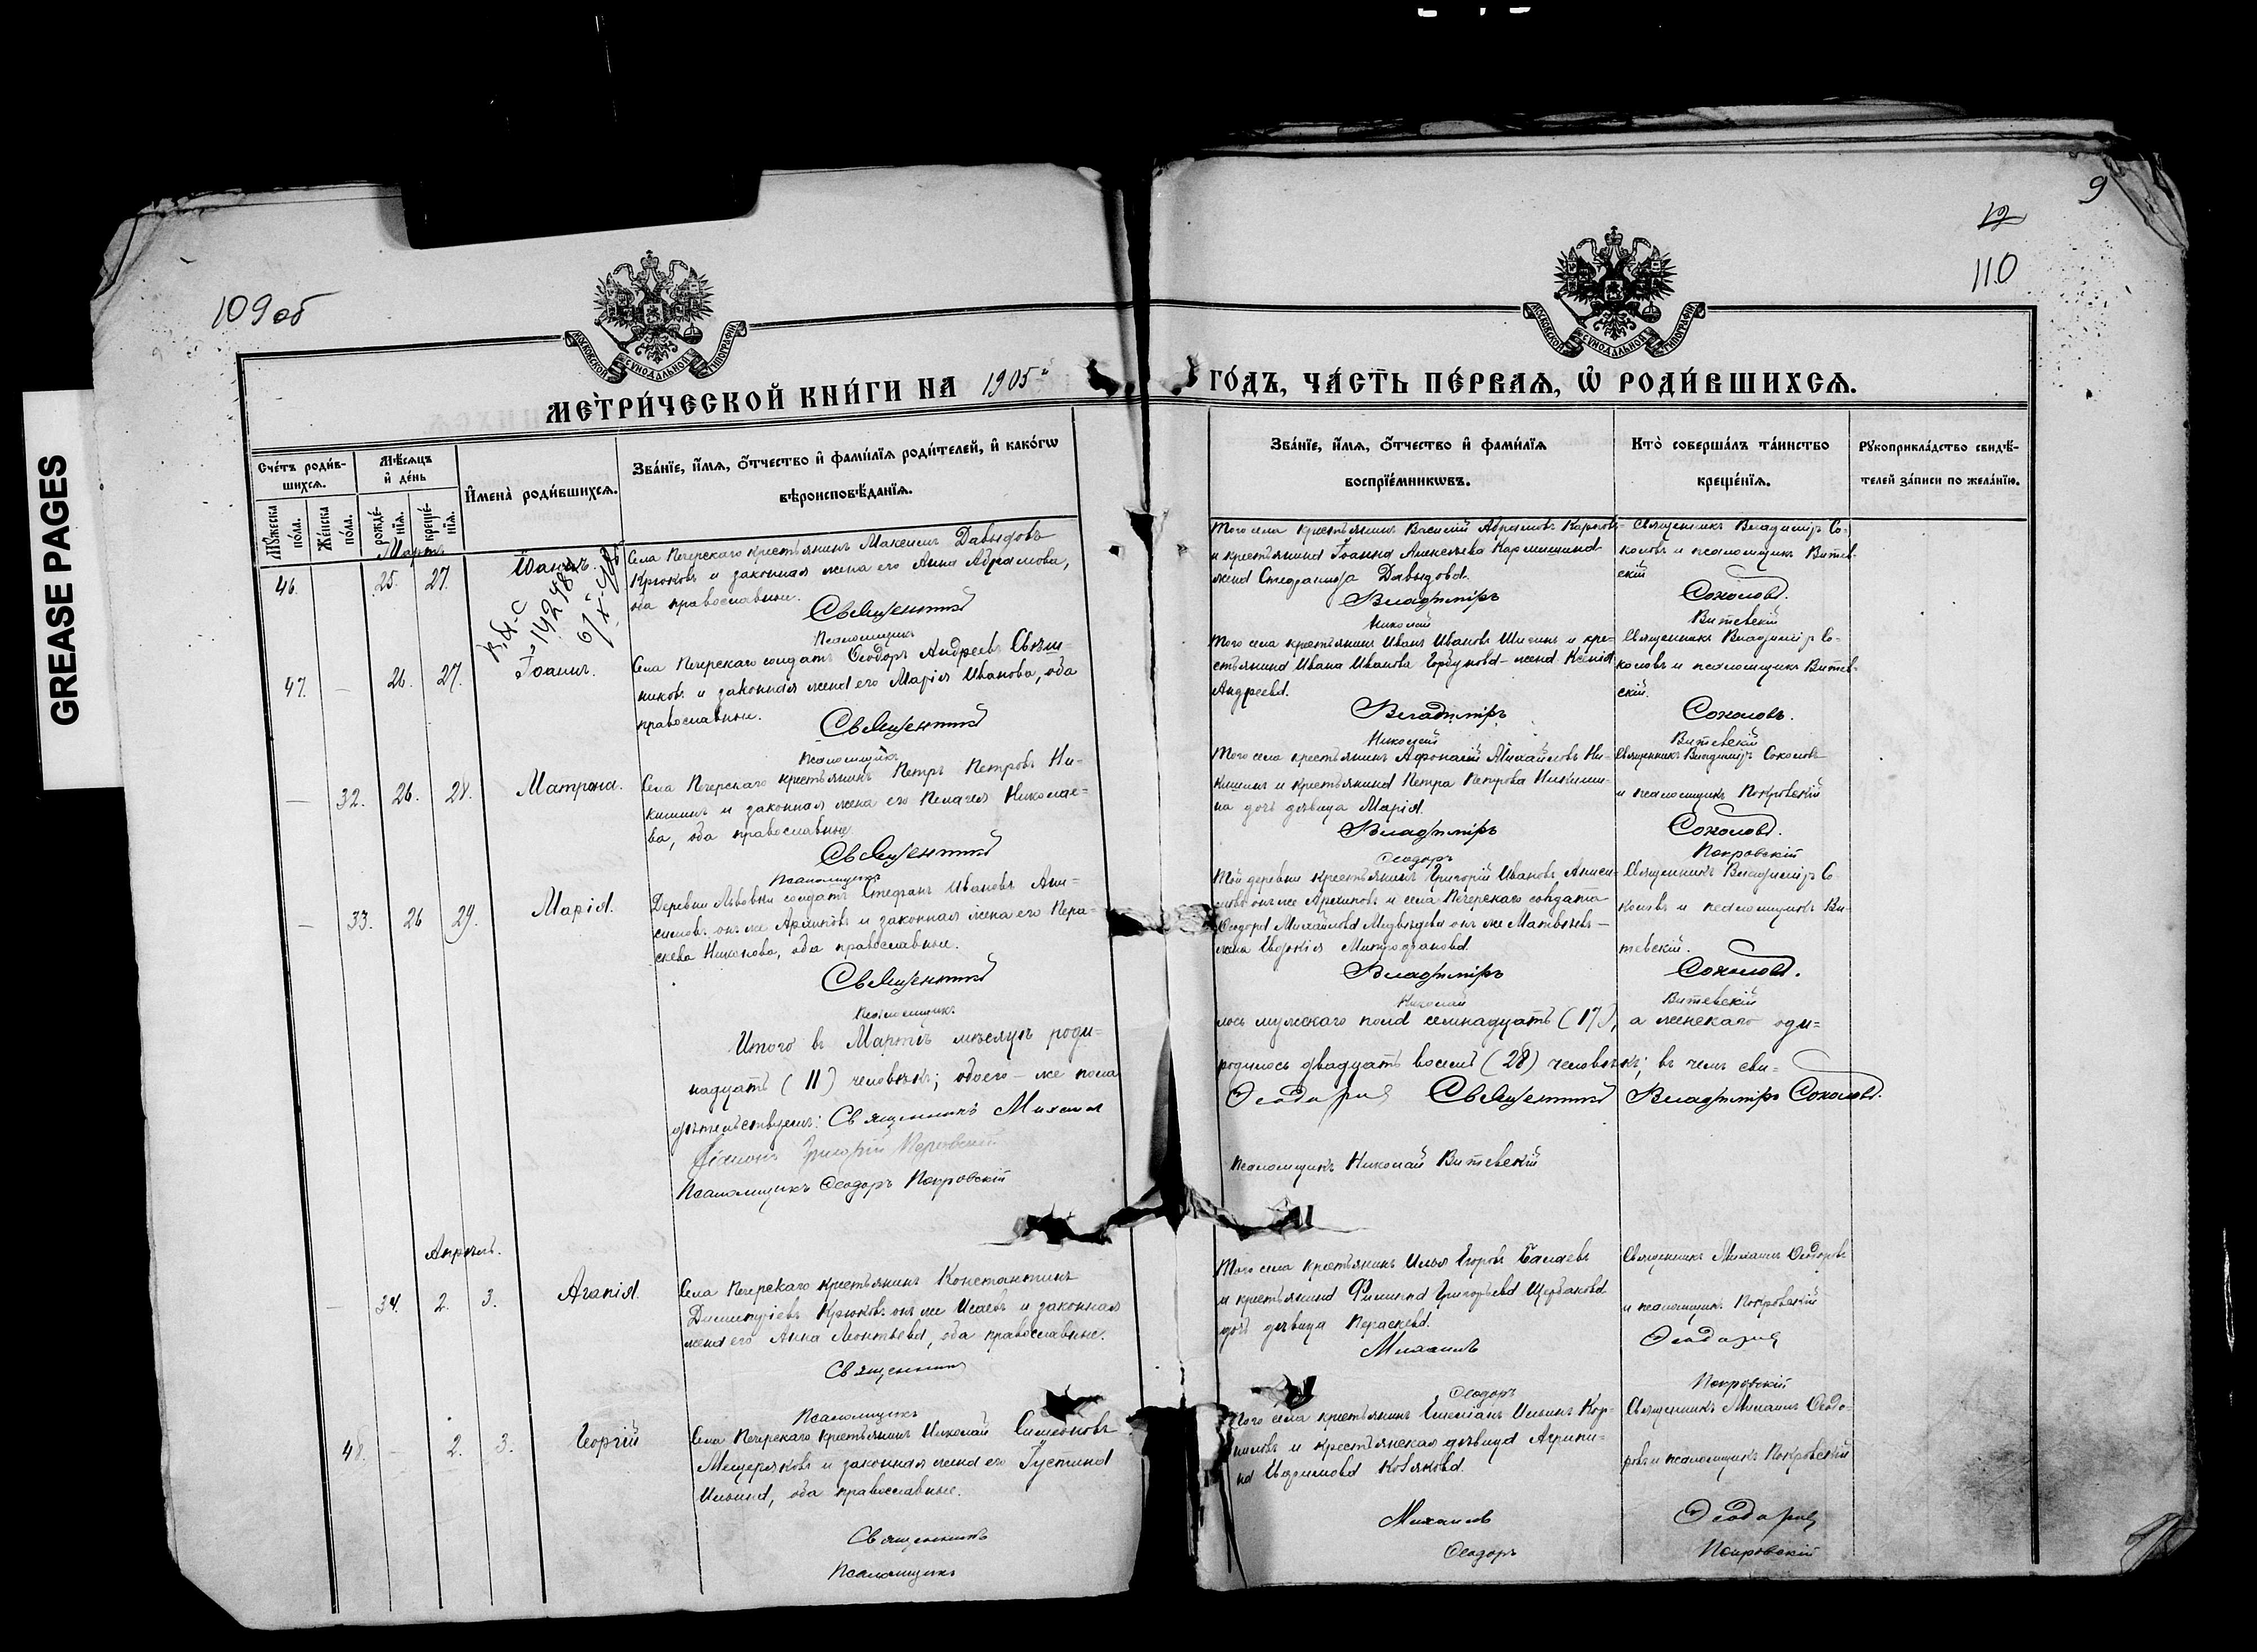 GREASE PAGES
109 об
9
12
110
МОСКОВСКОЙ СѴНОДАЛЬНОЙ ТИПОГРАФІИ
МОСКОВСКОЙ СѴНОДАЛЬНОЙ ТИПОГРАФІИ
МЕТРИ́ЧЕСКОЙ КНИ́ГИ НА 1905й ГО́ДЪ, ЧА́СТЬ ПЕ́РВАѦ, Ѡ҆ РОДИ́ВШИХСѦ.
Сче́тъ роди́в-
шихсѧ.
Мꙋ́жеска
по́ла.
Же́нска
по́ла.
Мѣ́сѧцъ
и҆ де́нь
рожде́-
нїѧ.
креще́-
нїѧ.
И҆мена̀ роди́вшихсѧ.
Зва́нїе, и҆́мѧ, ѻ҆́тчество и҆ фами́лїѧ роди́телей, и҆ како́гѡ
вѣроисповѣ́данїѧ.
Зва́нїе, и҆́мѧ, ѻ҆́тчество и҆ фами́лїѧ
воспрїе́мникѡвъ.
Кто̀ соверша́лъ та́инство
креще́нїѧ.
Рꙋкоприкла́дство свидѣ́-
телей за́писи по жела́нїю.
Мартъ
46. 25. 27. Іоаннъ.
Села Печерскаго крестьянинъ Максимъ Давыдовъ
Крюковъ и законная жена его Анна Абрамова,
оба православные.
Священникъ
Псаломщикъ
Того села крестьянинъ Василій Абрамовъ Карповъ
и крестьянина Іоанна Алексѣева Кармишина
жена Стефанида Давыдова.
Владиміръ
Николай
Священникъ Владиміръ Со-
коловъ и псаломщикъ Витев-
скій
Соколовъ.
Витевскій
47. — 26. 27. Іоаннъ.
Села Печерскаго солдатъ Ѳеодоръ Андреевъ Свѣш-
никовъ и законная жена его Марія Иванова, оба
православные.
Священникъ
Псаломщикъ
Того села крестьянинъ Иванъ Ивановъ Шишинъ и кре-
стьянина Ивана Иванова Горбунова — жена Ксенія
Андреева.
Владиміръ
Николай
Священникъ Владиміръ Со-
коловъ и псаломщикъ Витев-
скій.
Соколовъ.
Витевскій
— 32. 26. 28. Матрона.
Села Печерскаго крестьянинъ Петръ Петровъ Ни-
кишинъ и законная жена его Пелагея Николае-
ва, оба православные
Священникъ
Псаломщикъ
Того села крестьянинъ Афонасій Михайловъ Ни-
кишинъ и крестьянина Петра Петрова Никиши-
на дочь дѣвица Марія.
Владиміръ
Ѳеодоръ
Священникъ Владиміръ Соколовъ
и псаломщикъ Покровскій
Соколовъ.
Покровскій
— 33. 26 29. Марія.
Деревни Львовки солдатъ Стефанъ Ивановъ Ани-
симовъ онъ же Архиповъ и законная жена его Пара-
скева Никонова, оба православные.
Священникъ
Псаломщикъ
Той деревни крестьянинъ Григорій Ивановъ Аниси-
мовъ онъ же Архиповъ и села Печерскаго солдата
Ѳеодора Михайлова Медвѣдева онъ же Матвѣевъ —
жена Евдокія Митрофанова.
Владиміръ
Николай
Священникъ Владиміръ Со-
коловъ и псаломщикъ Ви-
тевскій.
Соколовъ.
Витевскій
Итого въ Мартѣ мѣсяцѣ роди-
лось мужскаго пола семнадцать (17), а женскаго оди-
надцать (11) человѣкъ; обоего-же пола
родилось двадцать восемь (28) человѣкъ; въ чемъ сви-
дѣтельствуемъ: Священникъ Михаилъ
Ѳеодоровъ Священникъ Владиміръ Соколовъ.
Діаконъ Григорій
Псаломщикъ Николай Витевскій
Псаломщикъ Ѳеодоръ Покровскій
Апрѣль.
— 34. 2. 3. Агапія.
Села Печерскаго крестьянинъ Константинъ
Димитріевъ Крюковъ онъ же Исаевъ и законная
жена его Анна Леонтьева, оба православные.
Священникъ
Псаломщикъ
Того села крестьянинъ Илья Егоровъ Балаевъ
и крестьянина Филиппа Григорьева Щербакова
дочь дѣвица Параскева.
Михаилъ
Ѳеодоръ
Священникъ Михаилъ Ѳеодоровъ
и псаломщикъ Покровскій
Ѳеодоровъ
Покровскій
48. — 2. 3. Георгій
Села Печерскаго крестьянинъ Николай Симеоновъ
Мещеряковъ и законная жена его Іустина
Ильина, оба православные.
Священникъ
Псаломщикъ
Того села крестьянинъ Емеліанъ Ильинъ Кор-
ниловъ и крестьянская дѣвица Агрипи-
на Евдокимова Кобякова.
Михаилъ
Ѳеодоръ
Священникъ Михаилъ Ѳеодо-
ровъ и псаломщикъ Покровскій
Ѳеодоровъ
Покровскій